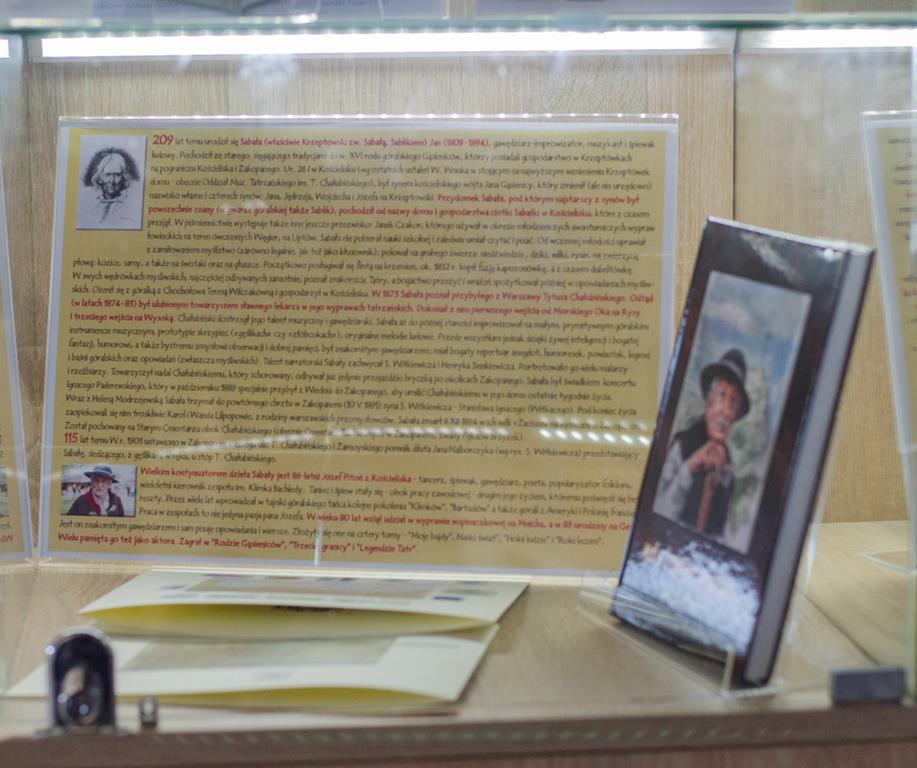 209 lat temu urodził się Sabała (właściwie Krzeptowski zw. Sabałą, Sablikiem) Jan (1809-1894), gawędziarz-improwizator, muzykant i śpiewak
ludowy. Pochodził ze starego, sięgającego tradycjami do w. XVI rodu góralskiego Gąsieniców, którzy posiadali gospodarstwo w Krzeptówkach
na pograniczu Kościeliska i Zakopanego. Ur. 26 I w Kościelisku (wg ostatnich ustaleń W. Wnuka w stojącym na najwyższym wzniesieniu Krzeptówek
domu - obecnie Oddział Muz. Tatrzańskiego im. T. Chałubińskiego), był synem kościeliskiego wójta Jana Gąsienicy, który zmienił (ale nie urzędowo)
nazwisko własne i czterech synów: Jana, Jędrzeja, Wojciecha i Józefa na Krzeptowski. Przydomek Sabała, pod którym najstarszy z synów był
powszechnie znany (w gwarze góralskiej także Sablik), pochodził od nazwy domu i gospodarstwa ciotki Sabałki w Kościelisku, które z czasem
przejął. W piśmiennictwie występuje także inne jeszcze przezwisko: Janek Czakor, którego używał w okresie młodzieńczych awanturniczych wypraw
łowieckich na teren ówczesnych Węgier, na Liptów. Sabała nie pobierał nauki szkolnej i zaledwie umiał czytać i pisać. Od wczesnej młodości uprawiał
z zamiłowaniem myślistwo (zarówno legalnie, jak też jako kłusownik); polował na grubego zwierza: niedźwiedzie, dziki, wilki, rysie, na zwierzynę
płową: kozice, sarny, a także na świstaki oraz na głuszce. Początkowo posługiwał się flintą na krzemień, ok. 1832 r. kupił fuzję kapiszonówkę, a z czasem dubeltówkę.
W swych wędrówkach myśliwskich, najczęściej odbywanych samotnie, poznał znakomicie Tatry, a bogactwo przeżyć i wrażeń spożytkował później w opowiadaniach myśliw-
skich. Ożenił się z góralką z Chochołowa Teresą Wilczakówną i gospodarzył w Kościelisku. W 1873 Sabała poznał przybyłego z Warszawy Tytusa Chałubińskiego. Odtąd
(w latach 1874-83) był ulubionym towarzyszem sławnego lekarza w jego wyprawach tatrzańskich. Dokonał z nim pierwszego wejścia od Morskiego Oka na Rysy
i trzeciego wejścia na Wysoką. Chałubiński dostrzegł jego talent muzyczny i gawędziarski. Sabała aż do późnej starości improwizował na małym, prymitywnym góralskim
instrumencie muzycznym, prototypie skrzypiec («gęślikach» czy «złóbcokach»), oryginalne melodie ludowe. Przede wszystkim jednak dzięki żywej inteligencji i bogatej
fantazji, humorowi, a także bystremu zmysłowi obserwacji i dobrej pamięci, był znakomitym gawędziarzem; miał bogaty repertuar anegdot, humoresek, powiastek, legend
i baśni góralskich oraz opowiadań (zwłaszcza myśliwskich). Talent narratorski Sabały zachwycał S. Witkiewicza i Henryka Sienkiewicza. Portretowało go wielu malarzy
i rzeźbiarzy. Towarzyszył nadal Chałubińskiemu, który schorowany, odbywał już jedynie przejażdżki bryczką po okolicach Zakopanego. Sabała był świadkiem koncertu
Ignacego Paderewskiego, który w październiku 1889 specjalnie przybył z Wiednia do Zakopanego, aby umilić Chałubińskiemu w jego domu ostatnie tygodnie życia.
Wraz z Heleną Modrzejewską Sabała trzymał do powtórnego chrztu w Zakopanem (10 V 1891) syna S. Witkiewicza - Stanisława Ignacego (Witkacego). Pod koniec życia
zaopiekowali się nim troskliwie Karol i Wanda Lilpopowie, z rodziny warszawskich przemysłowców. Sabała zmarł 8 XII 1894 w ich willi «Zacisze»
Został pochowany na Starym Cmentarzu obok Chałubińskiego (obecnie Cmentarz Zasłużonych w Zakopanem, zwany Pęksów Brzyzek).
115 lat temu W r. 1903 ustawiono w Zakopanem T. Chałubińskiego i Zamoyskiego pomnik dłuta Jana Nalborczyka (wg rys. S. Witkiewicza) przedstawiający
Sabałę, siedzącego, z gęślikami w ręku, u stóp T. Chałubińskiego.
Wielkim kontynuatorem dzieła Sabały jest 86-letni Józef Pitoń z Kościeliska - tancerz, śpiewak, gawędziarz, poeta, popularyzator folkloru,
wieloletni kierownik zespołu im. Klimka Bachledy. Taniec i śpiew stały się - obok pracy zawodowej - drugim jego życiem, któremu poświęcił się bez
reszty. Przez wiele lat wprowadzał w tajniki góralskiego tańca kolejne pokolenia "Klimków", "Bartusiów" a także górali z Ameryki i Polonię
Praca w zespołach to nie jedyna pasja pana Józefa. W wieku 80 lat wziął udział w wyprawie wspinaczkowej na Mnicha, a w 83 urodziny na
Jest on znakomitym gawędziarzem i sam pisuje opowiadania i wiersze. Złożyły się one na cztery tomy - "Moje bajdy", "Naski świat", "Hołni ludzie" i "Roki lecom".
Wielu pamięta go też jako aktora. Zagrał w "Rodzie Gąsieniców", "Trzeciej granicy" i "Legendzie Tatr".